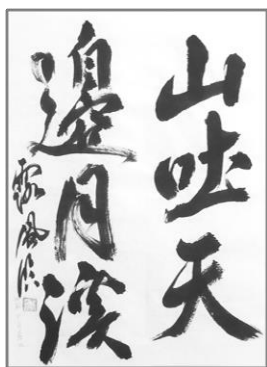 山吐天
邊月溪